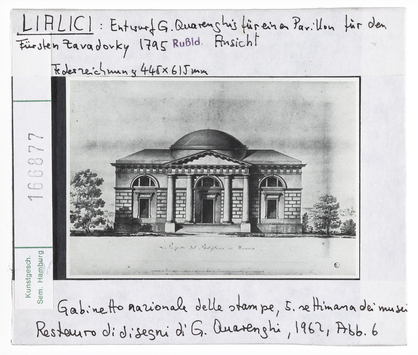 LIALICI: Entwurf G. Quarenghis für einen Pavillon für den
Fürsten Zavadovky 1795 Rußld. Ansicht
Federzeichnung 445 x 615 mm
166877
Kunstgesch.
Sem. Hamburg
Gabinetto nazionale delle stampe, 5. settimana dei musei
Restauro di disegni di G. Quarenghi, 1962, Abb. 6